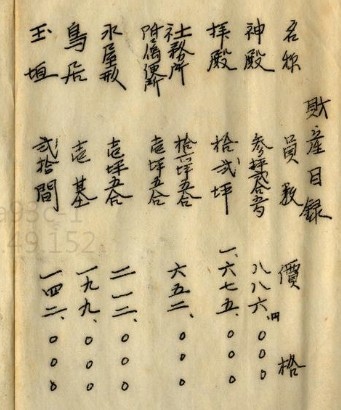 財産目録
名称 員数 價格
神殿 参坪弐合五勺 八八六円、〇〇〇
拝殿 拾弐坪 一、六七五、〇〇〇
社務所 拾一坪五合 六五二、〇〇〇
附属便所 壱坪五合
水屋形 壱坪五合 二一二、〇〇〇
鳥居 壱基 一九九、〇〇〇
玉垣 弐拾間 一四二、〇〇〇